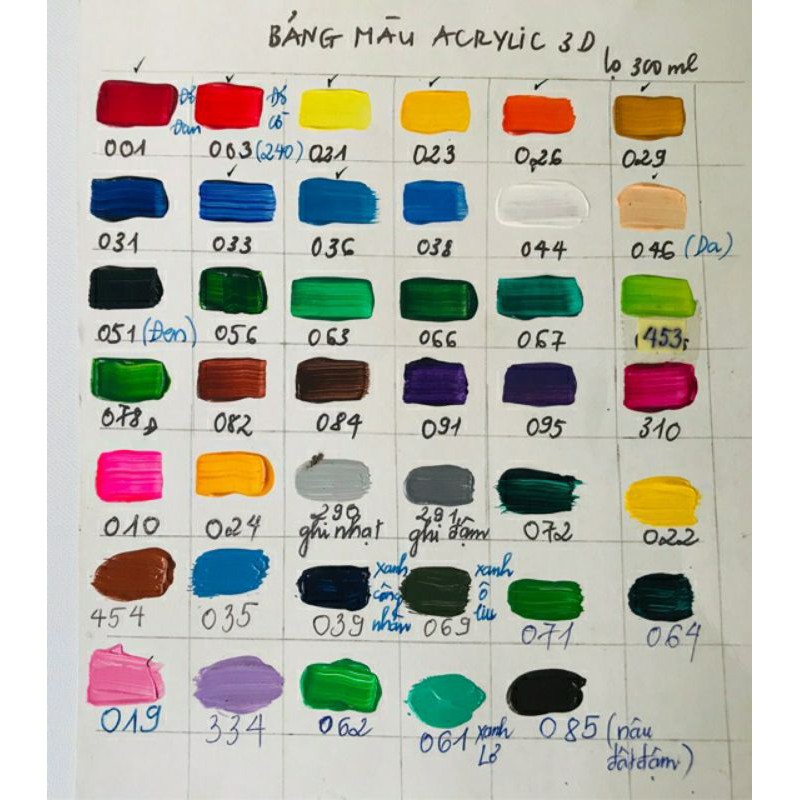 BẢNG MÀU ACRYLIC 3D
lọ 300 ml
001 Đỏ Đan 003 (240) Đỏ cờ 021 023 026 029
031 033 036 038 044 046 (Da)
051 (Đen) 056 063 066 067 453
078 082 084 091 095 310
010 024 290 ghi nhạt 291 ghi đậm 072 022
454 035 039 xanh công nhân 069 xanh ô liu 071 064
019 334 062 061 xanh Lơ 085 (nâu đất đậm)